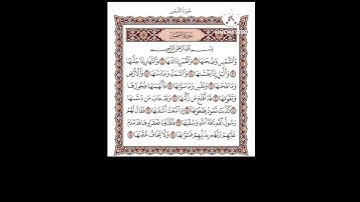 سورة الشمس
KINEMASTER
سورة الشمس
بِسْمِ اللَّهِ الرَّحْمَٰنِ الرَّحِيمِ
وَالشَّمْسِ وَضُحَىٰهَا ١ وَالْقَمَرِ إِذَا تَلَىٰهَا ٢ وَالنَّهَارِ إِذَا جَلَّىٰهَا
٣ وَالَّيْلِ إِذَا يَغْشَىٰهَا ٤ وَالسَّمَاءِ وَمَا بَنَىٰهَا ٥ وَالْأَرْضِ
وَمَا طَحَىٰهَا ٦ وَنَفْسٍ وَمَا سَوَّىٰهَا ٧ فَأَلْهَمَهَا فُجُورَهَا
وَتَقْوَىٰهَا ٨ قَدْ أَفْلَحَ مَن زَكَّىٰهَا ٩ وَقَدْ خَابَ مَن دَسَّىٰهَا
١٠ كَذَّبَتْ ثَمُودُ بِطَغْوَىٰهَا ١١ إِذِ انبَعَثَ أَشْقَىٰهَا ١٢ فَقَالَ لَهُمْ
رَسُولُ اللَّهِ نَاقَةَ اللَّهِ وَسُقْيَٰهَا ١٣ فَكَذَّبُوهُ فَعَقَرُوهَا فَدَمْدَمَ
عَلَيْهِمْ رَبُّهُم بِذَنبِهِمْ فَسَوَّىٰهَا ١٤ وَلَا يَخَافُ عُقْبَٰهَا ١٥